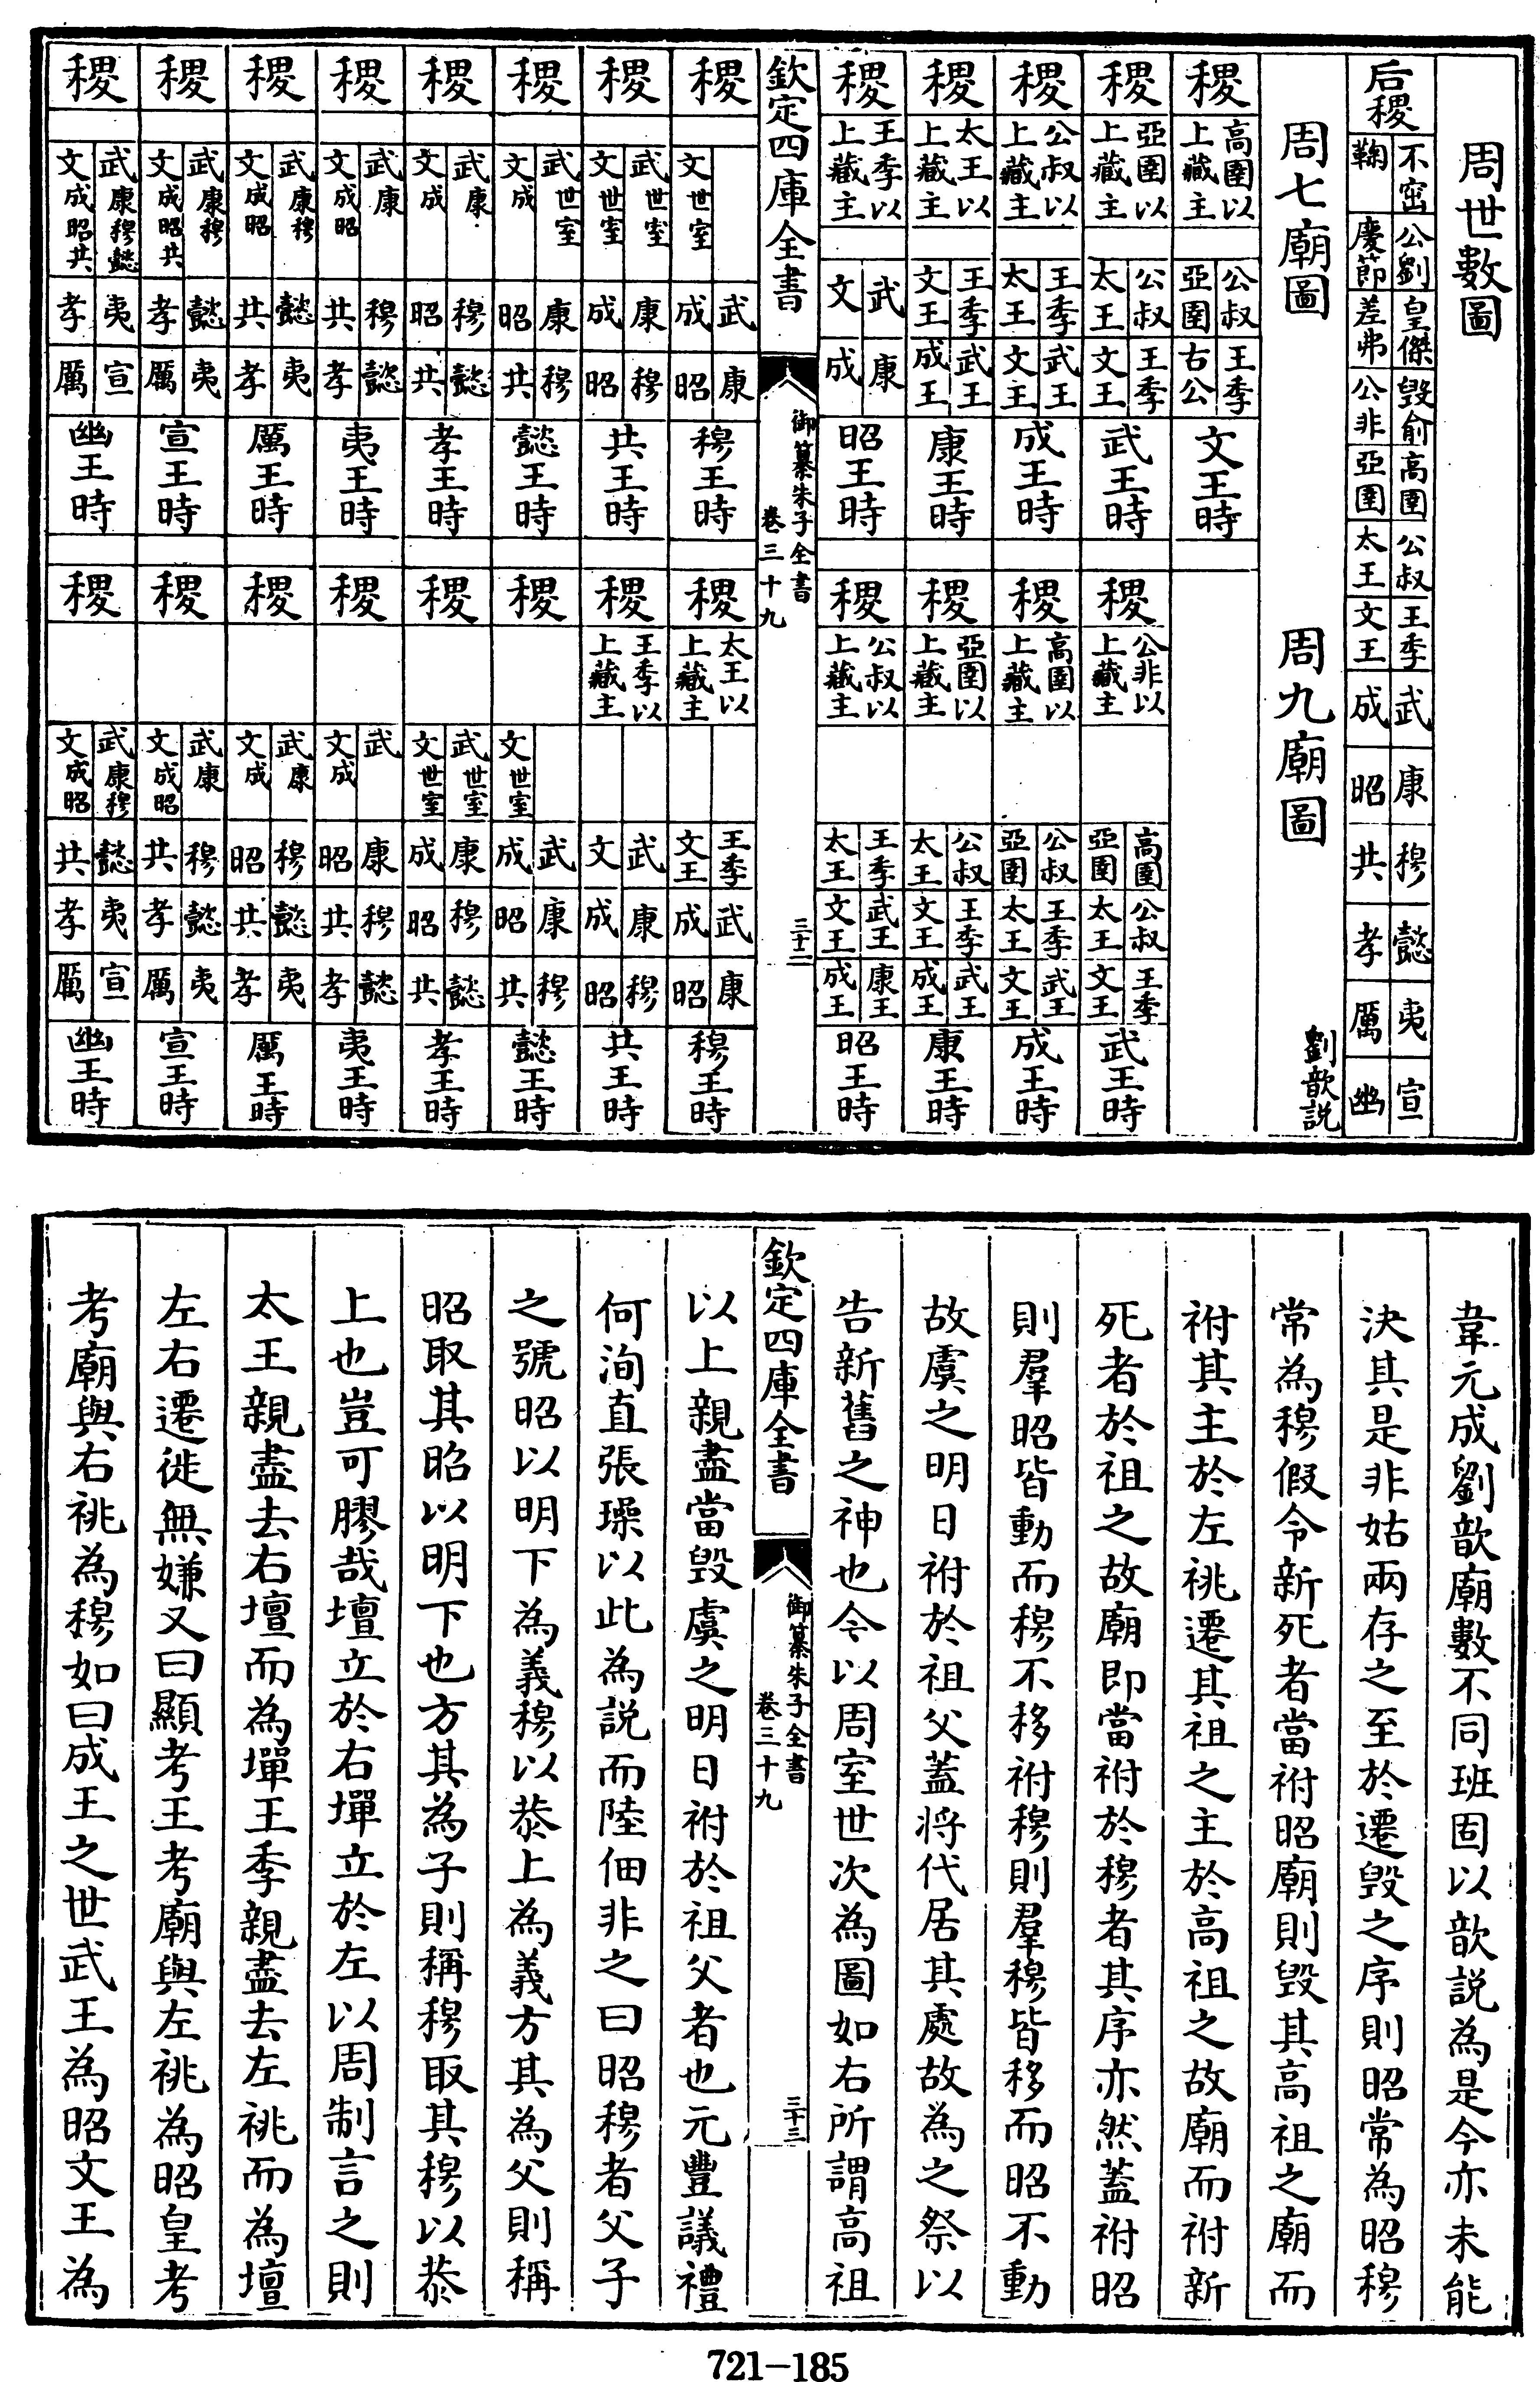 周世數圖
后稷
不窋 公劉 皇傑 毀俞 高圉 公叔 王季 武 康 穆 懿 夷 宣
鞠 慶節 差弗 公非 亞圉 太王 文王 成 昭 共 孝 厲 幽
周七廟圖 周九廟圖 劉歆説
稷 高圉以上藏主 公叔 亞圉 王季 古公 文王時
稷 亞圉以上藏主 公叔 太王 王季 文王 武王時
稷 公非以上藏主 高圉 亞圉 公叔 太王 王季 文王 武王時
稷 公叔以上藏主 王季 太王 武王 文王 成王時
稷 高圉以上藏主 公叔 亞圉 王季 太王 武王 文王 成王時
稷 太王以上藏主 王季 文王 武王 成王 康王時
稷 亞圉以上藏主 公叔 太王 王季 文王 武王 成王 康王時
稷 王季以上藏主 武 文 康 成 昭王時
稷 公叔以上藏主 王季 太王 武王 文王 康王 成王 昭王時
欽定四庫全書 御纂朱子全書 卷三十九 三十二
稷 文世室 武 成 康 昭 穆王時
稷 太王以上藏主 王季 文王 武 成 康 昭 穆王時
稷 武世室 文世室 康 成 穆 昭 共王時
稷 王季以上藏主 武 文 康 成 穆 昭 共王時
稷 武世室 文成 康 昭 穆 共 懿王時
稷 文世室 武 成 康 昭 穆 共 懿王時
稷 武康 文成 穆 昭 懿 共 孝王時
稷 武世室 文世室 康 成 穆 昭 懿 共 孝王時
稷 武康 文成昭 穆 共 懿 孝 夷王時
稷 武 文成 康 昭 穆 共 懿 孝 夷王時
稷 武康穆 文成昭 懿 共 夷 孝 厲王時
稷 武康 文成 穆 昭 懿 共 夷 孝 厲王時
稷 武康穆 文成昭共 懿 孝 夷 厲 宣王時
稷 武康 文成昭 穆 共 懿 孝 夷 厲 宣王時
稷 武康穆懿 文成昭共 夷 孝 宣 厲 幽王時
稷 武康穆 文成昭 懿 共 夷 孝 宣 厲 幽王時
韋元成劉歆廟數不同班固以歆説為是今亦未能
決其是非姑兩存之至於遷毀之序則昭常為昭穆
常為穆假令新死者當祔昭廟則毀其高祖之廟而
祔其主於左祧遷其祖之主於高祖之故廟而祔新
死者於祖之故廟即當祔於穆者其序亦然蓋祔昭
則羣昭皆動而穆不移祔穆則羣穆皆移而昭不動
故虞之明日祔於祖父蓋將代居其處故為之祭以
告新舊之神也今以周室世次為圖如右所謂高祖
欽定四庫全書 御纂朱子全書 卷三十九 三十三
以上親盡當毀虞之明日祔於祖父者也元豐議禮
何洵直張璪以此為説而陸佃非之曰昭穆者父子
之號昭以明下為義穆以恭上為義方其為父則稱
昭取其昭以明下也方其為子則稱穆取其穆以恭
上也豈可膠哉壇立於右墠立於左以周制言之則
太王親盡去右壇而為墠王季親盡去左祧而為壇
左右遷徙無嫌又曰顯考王考廟與左祧為昭皇考
考廟與右祧為穆如曰成王之世武王為昭文王為
721-185